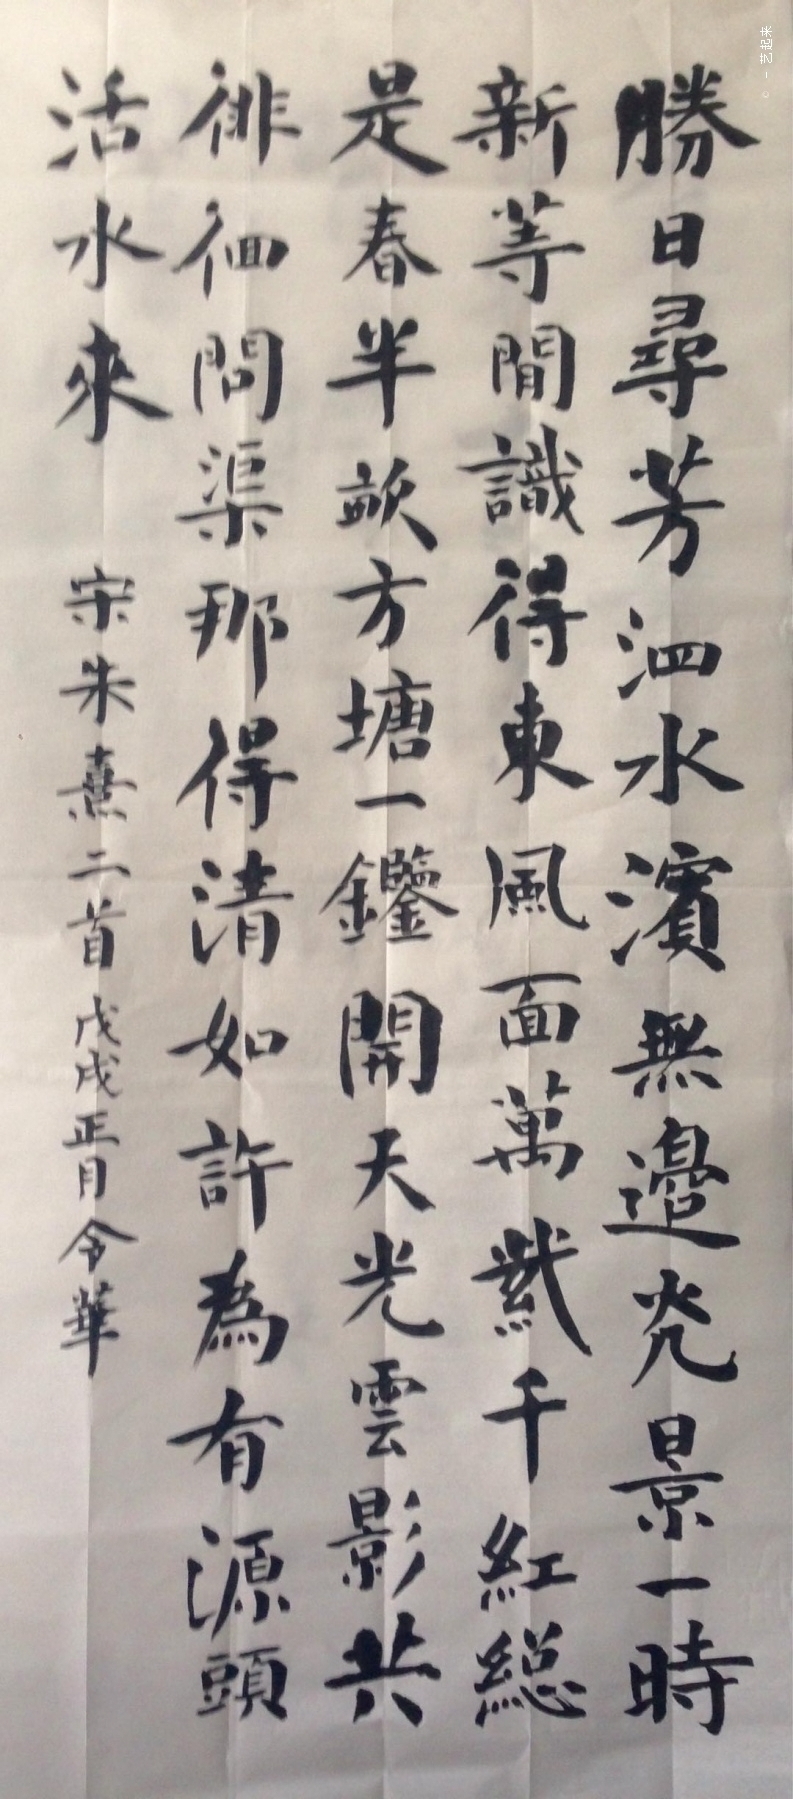 勝日尋芳泗水濱無邊光景一時
新等閒識得東風面萬紫千紅総
是春半畝方塘一鑑開天光雲影共
徘徊問渠那得清如許為有源頭
活水來
宋朱熹二首戊戌正月令華
© 一艺起来